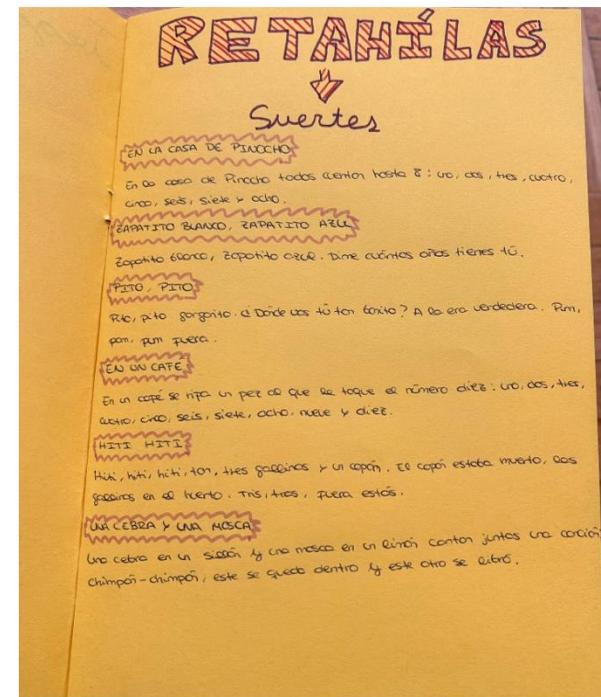 RETAHÍLAS
Suertes
EN LA CASA DE PINOCHO
En la casa de Pinocho todos cuentan hasta 8: uno, dos, tres, cuatro,
cinco, seis, siete y ocho.
ZAPATITO BLANCO, ZAPATITO AZUL
Zapatito blanco, zapatito azul. Dime cuántos años tienes tú.
PITO, PITO
Pito, pito gorgorito. ¿Dónde vas tú tan bonito? A la era verdadera. Pim,
pam, pum fuera.
EN UN CAFÉ
En un café se rifa un pez al que le toque el número diez: uno, dos, tres,
cuatro, cinco, seis, siete, ocho, nueve y diez.
HITI HITI
Hiti, hiti, hiti, ton, tres gallinas y un capón. El capón estaba muerto, las
gallinas en el huerto. Tris, tras, fuera estás.
UNA CEBRA Y UNA MOSCA
Una cebra en un sillón y una mosca en un limón cantan juntas una canción
chimpón-chimpón, este se quedo dentro y este otro se libró.